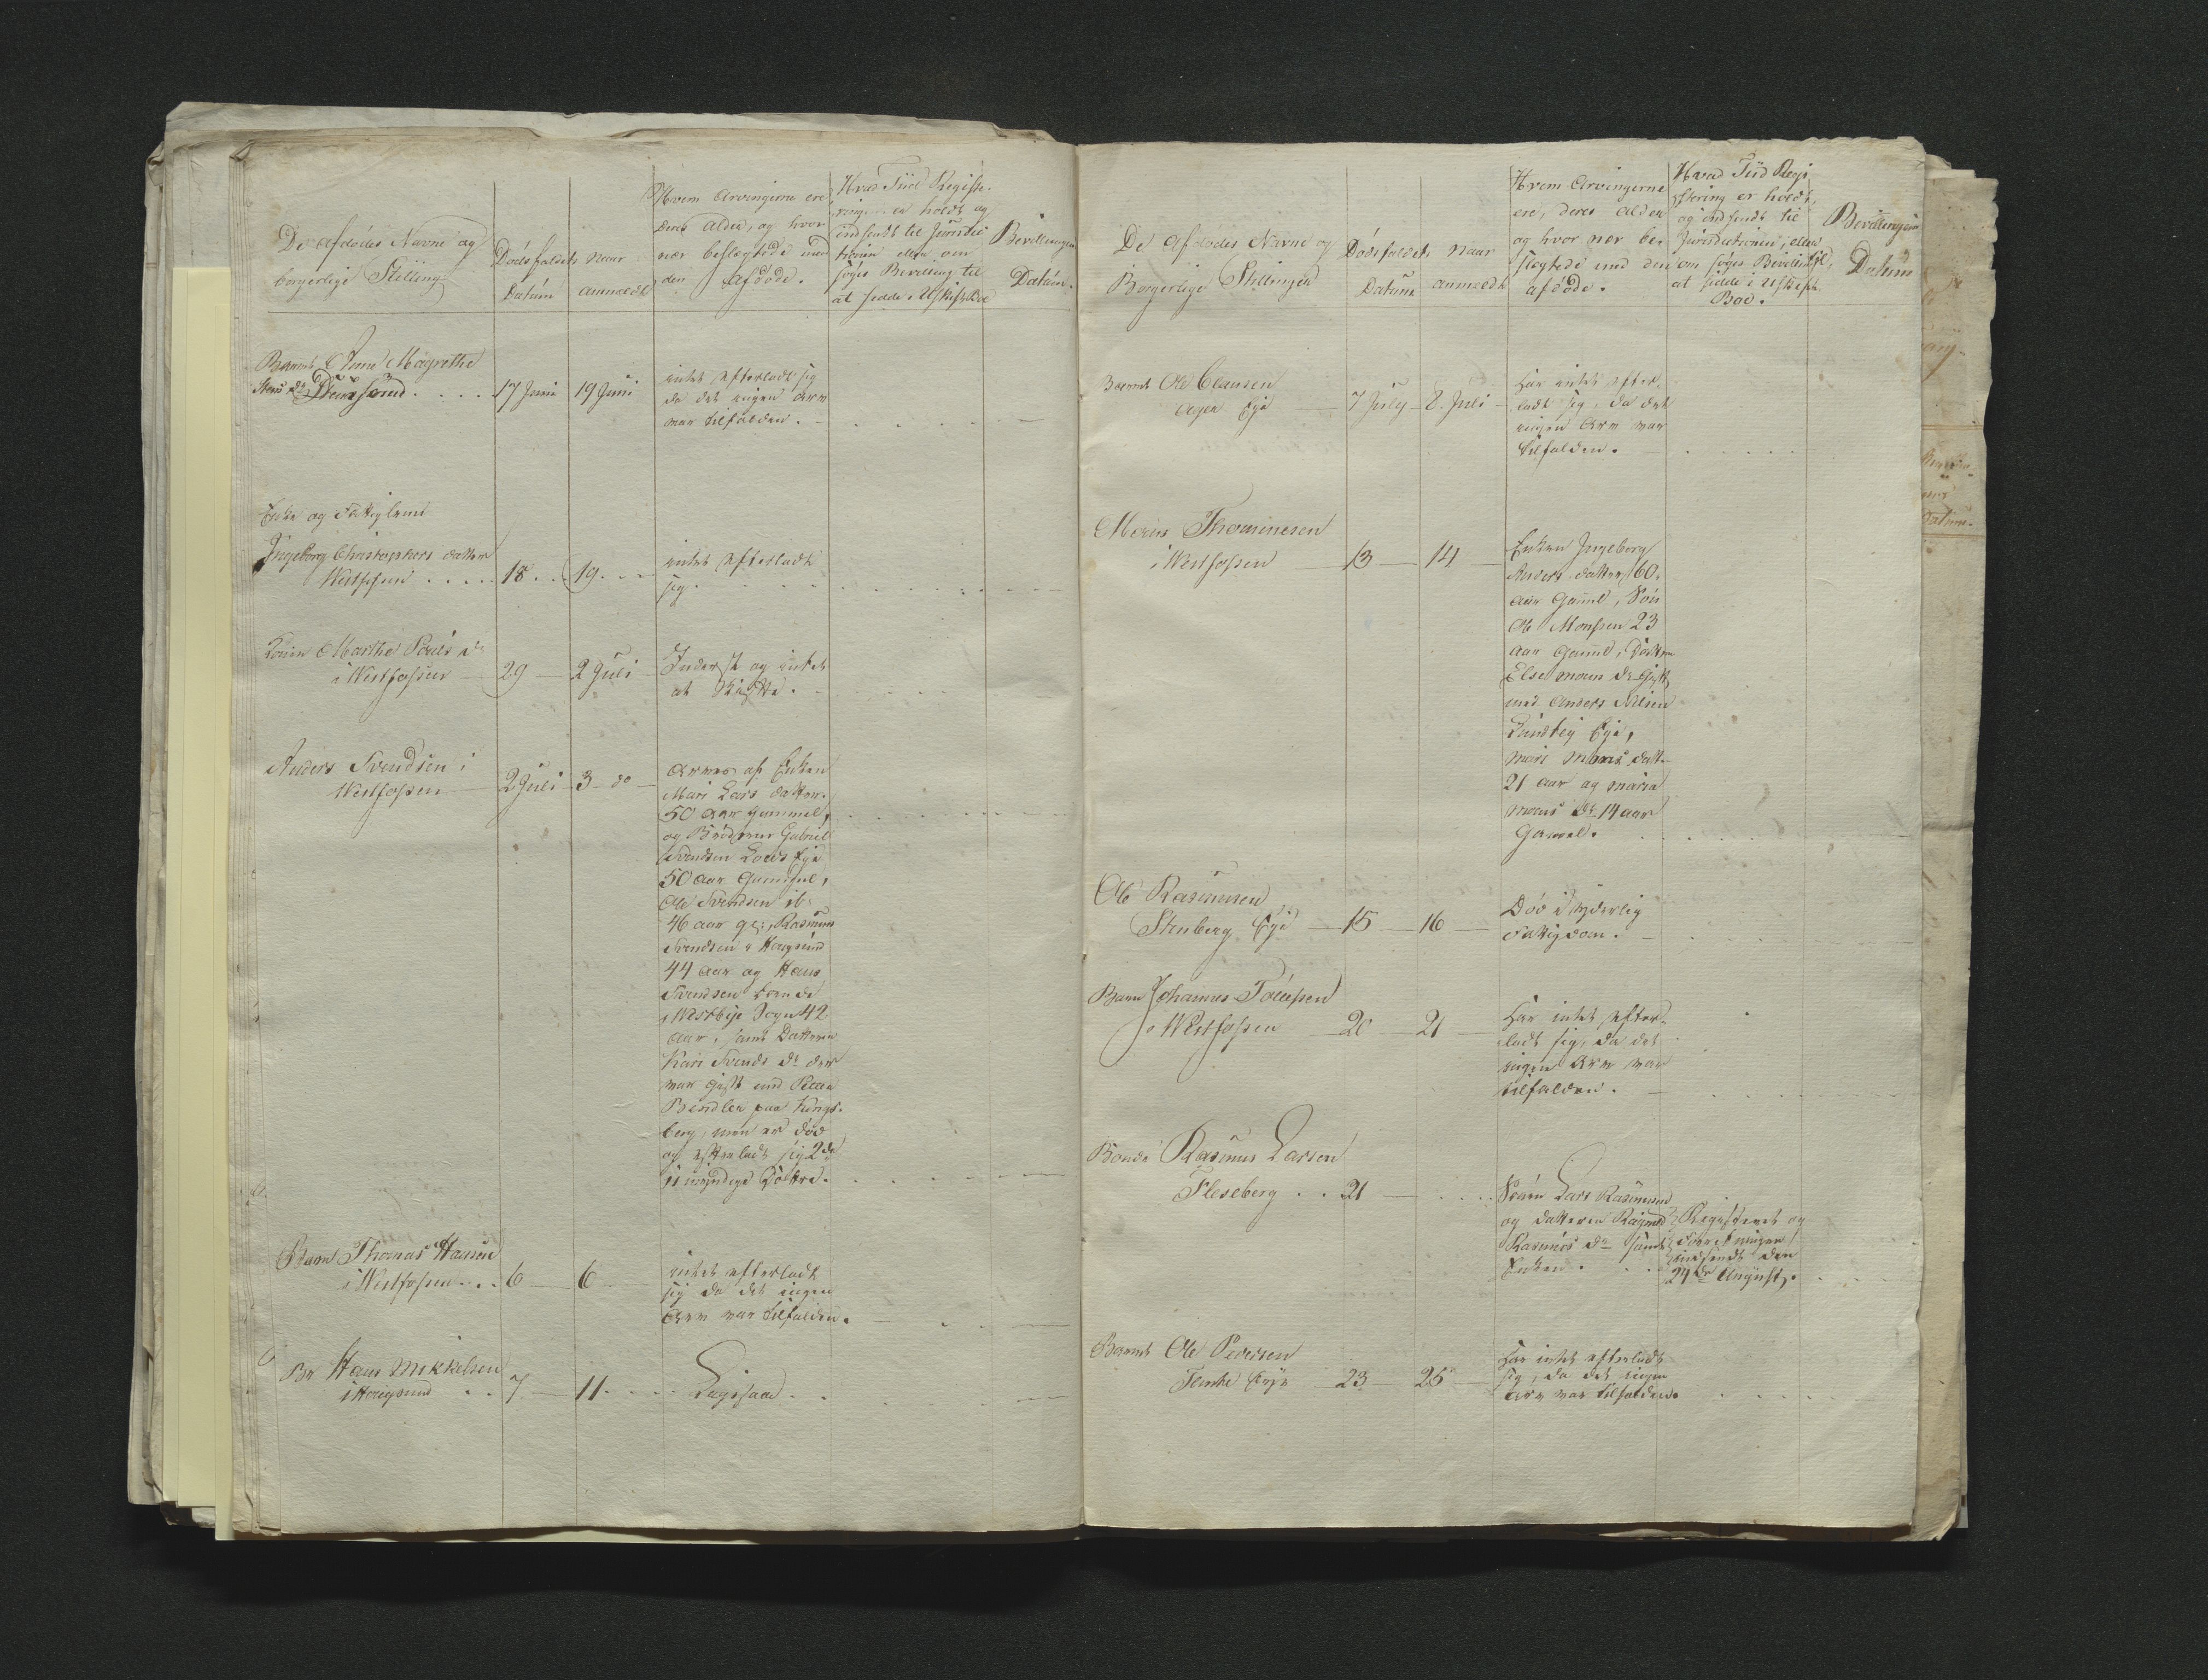 De Afdødes Navne og
borgerlige Stilling
Dødsfaldets
Datum
naar
anmeldt
Hvem Arvingerne ere
deres Alder, og hvor
nær beslægtede med
den Afdøde.
Hvad Tiid Registe-
ringen er holdt og
indsendt til
eller om
søges Bevilling til
at sidde i Uskift Boe
Bevillingens
Datum.
Barnet Anne Magrethe
17 Juni 19 Juni
intet efterladt sig
da det ingen Arv
var tilfalden.
Enke og Fattiglem
Ingeborg Christophers datter
Westfossen 18 19
intet efterladt
sig.
Konen Marthe Povels dr
i Westfossen 29 2 Juli
Inderst og intet
at skifte.
Anders Svendsen i
Westfossen 2 Juli 3 do
Arves af Enken
Mari Lars datter
50 aar gammel,
og Brødrene Gabriel
Svendsen Loes Eje
50 aar Gammel,
Ole Svendsen ib
46 aar gl:, Rasmus
Svendsen i Hougsund
44 aar og Hans
Svendsen boende
i Westbye Sogn 42
aar, samt Datteren
Kari Svends dr der
var gift med Peder
Bendler paa Kongs-
berg, men er død
og efterladt sig 2de
umyndige Døttre.
Barn Thomas Hansen
i Westfossen 6 6
intet efterladt
sig da det ingen
Arv var tilfalden.
Br Hans Mikkelsen
i Hougsund 7 11
De Afdødes Navne og
Borgerlige Stillinger
Dødsfaldets
Datum
naar
anmeldt
Hvem Arvingerne
ere, deres Alder
og hvor nær be-
slægtede med den
afdøde.
Hvad Tiid Regi
stering er holdt,
og indsendt til
Jurisdictionen, eller
om søges Bevilling til,
at sidde i Uskift
Boe.
Bevillingens
Datum
Barnet Ole Clausen
Eje 7 July 8. Juli
Har intet efter-
ladt sig, da det
ingen Arv var
tilfalden.
Mons Thommesen
i Westfossen 13 14
Enken Ingeborg
Anders datter 60
aar Gammel, Søn
Ole Monsen 23
aar Gammel, Datter
Else Mons dr Gift
med Anders Nilsen
Eje,
Mari Mons datter
21 aar og Maria
Mons dr 14 aar
Gammel.
Ole Rasmusen
Stenberg Eje 15 16
Død i yderlig
Fattigdom.
Barn Johannes Tollefsen
i Westfossen 20 21
Har intet efter-
ladt sig, da det
ingen Arv var
tilfalden.
Bonde Rasmus Larsen
Fleseberg 21
Sønn Lars Rasmussen
og datteren
Rasmus dr samt
Enken.
Registeret og
indsendt den
24de August.
Barnet Ole Pedersen
23 25
Har intet efterladt
sig, da det ingen
Arv var tilfalden.